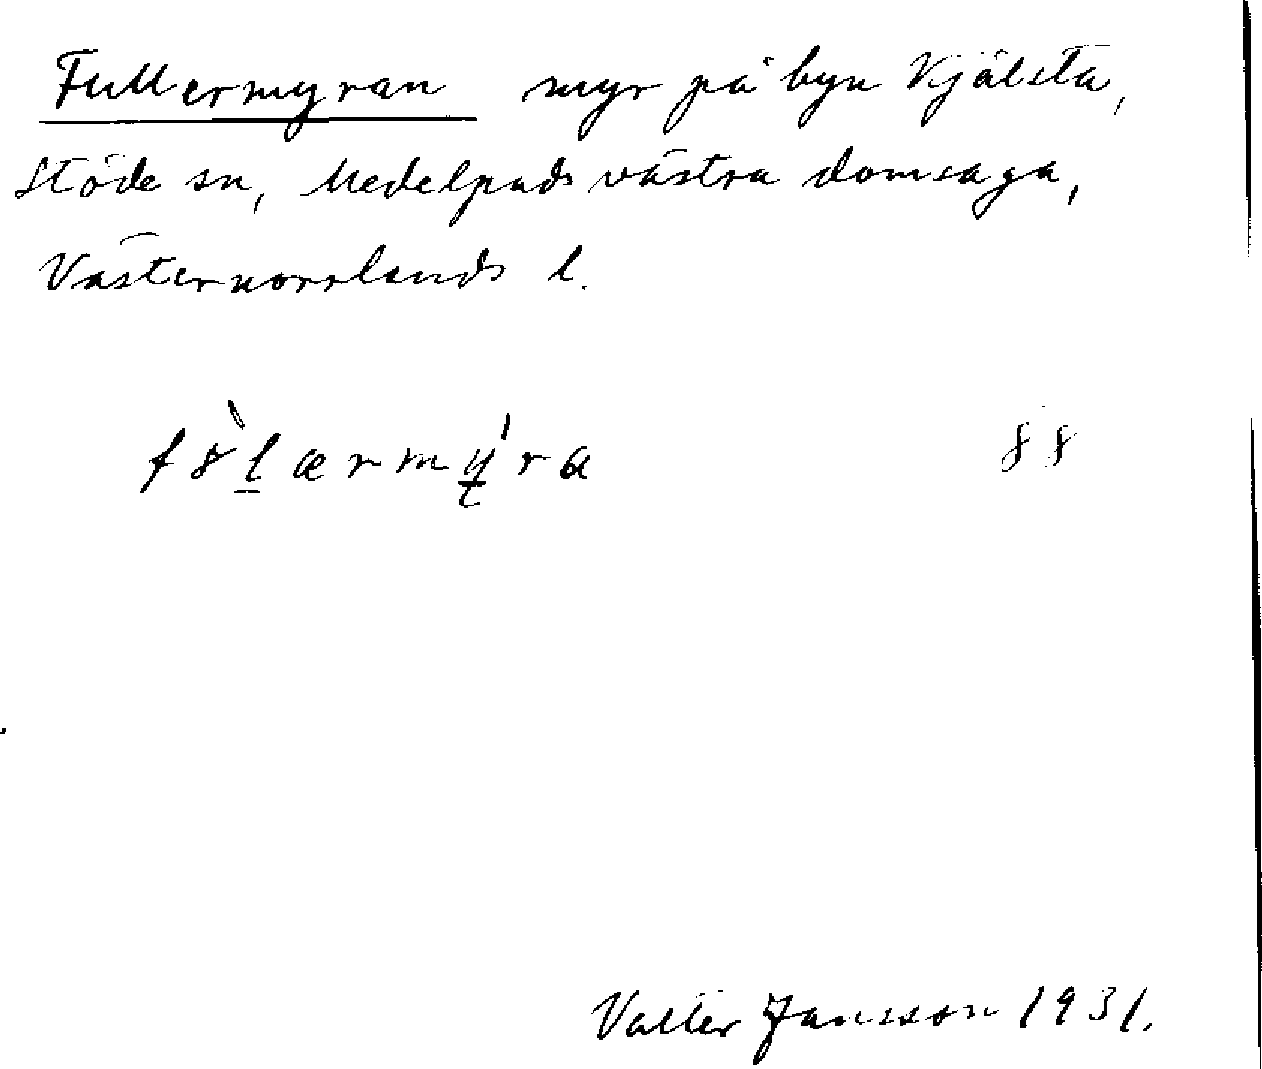 Fullermyran myr på byn Kjälsta,
Stöde sn, Medelpads västra domsaga,
Västernorrlands l.
f8̀l̲ærmý̲ra 88
Valter Jansson 1931.